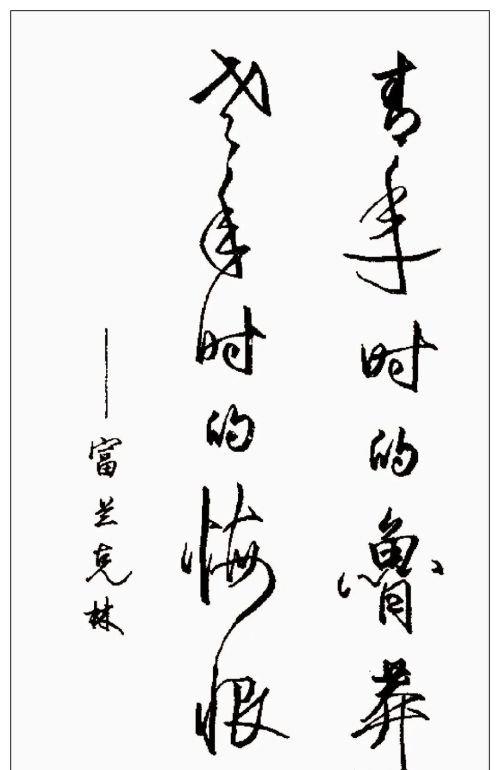 青年时的鲁莽
老年时的悔恨
——富兰克林